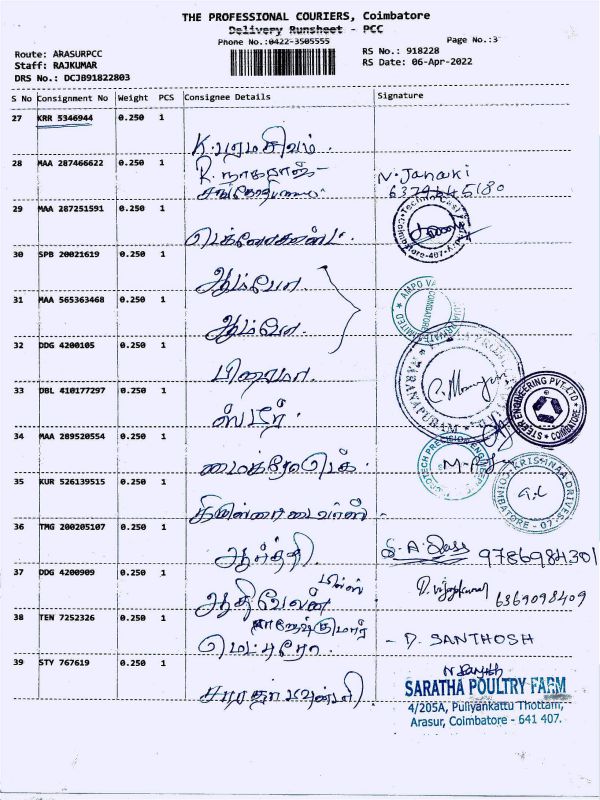 THE PROFESSIONAL COURIERS, Coimbatore
Delivery Runsheet - PCC
Phone No.:0422-3505555
Page No.:3
Route: ARASURPCC
RS No.: 918228
Staff: RAJKUMAR
RS Date: 06-Apr-2022
DRS No.: DCJB91822803
S No Consignment No Weight PCS Consignee Details Signature
27 KRR 5346944 0.250 1
K. பரமசிவம்.
28 MAA 287466622 0.250 1
R. நாகராஜ் - N. Janaki
29 MAA 287251591 0.250 1
30 SPB 20021619 0.250 1
ஆம்போ.
31 MAA 565363468 0.250 1
ஆம்போ.
32 DDG 4200105 0.250 1
33 DBL 410177297 0.250 1
ஸ்டீர்.
STEER ENGINEERING PVT. LTD COIMBATORE
34 MAA 289520554 0.250 1
மைக்ரோடெக்.
35 KUR 526139515 0.250 1
KRISHNAA DRIVES COIMBATORE - 07
36 TMG 200205107 0.250 1
ஆர்த்தி. 9786984301
37 DDG 4200909 0.250 1
மில்ஸ்
ஆதிவேலன் 6369098409
38 TEN 7252326 0.250 1
ராஜேஷ்குமார்
மெட்டுரோ. - D. SANTHOSH
39 STY 767619 0.250 1
SARATHA POULTRY FARM
4/205A, Puliyankattu Thottam,
Arasur, Coimbatore - 641 407.